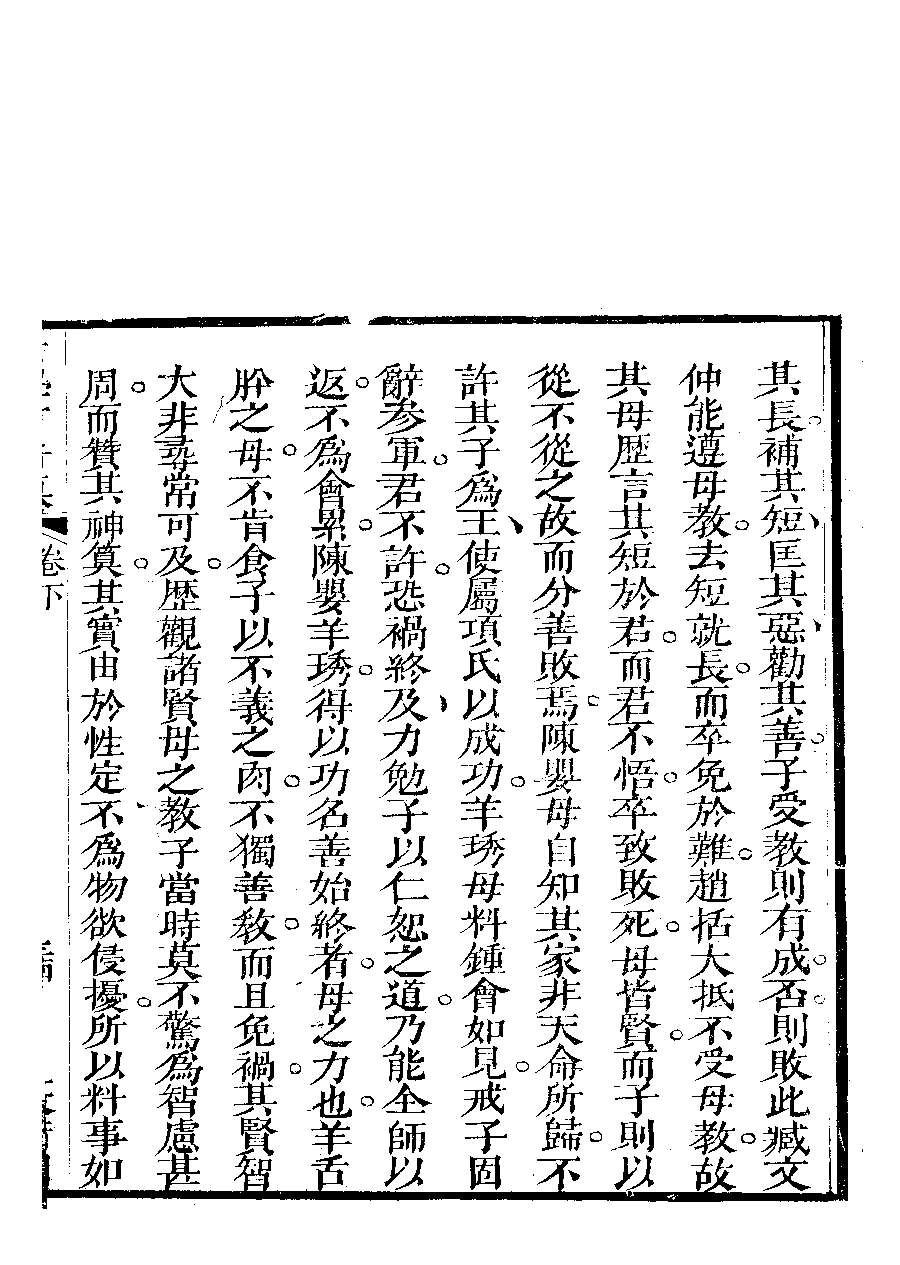 其長補其短匡其惡勸其善子受教則有成否則敗此臧文
仲能遵母教去短就長而卒免於難趙括大抵不受母教故
其母歷言其短於君而君不悟卒致敗死母皆賢而子則以
從不從之故而分善敗焉陳嬰母自知其家非天命所歸不
許其子爲王使屬項氏以成功羊琇母料鍾會如見戒子固
辭參軍君不許恐禍終及力勉子以仁恕之道乃能全師以
返不爲會累陳嬰羊琇得以功名善始終者母之力也羊舌
肸之母不肯食子以不義之肉不獨善教而且免禍其賢智
大非尋常可及歷觀諸賢母之教子當時莫不驚爲智慮甚
周而贊其神算其實由於性定不爲物欲侵擾所以料事如
卷下